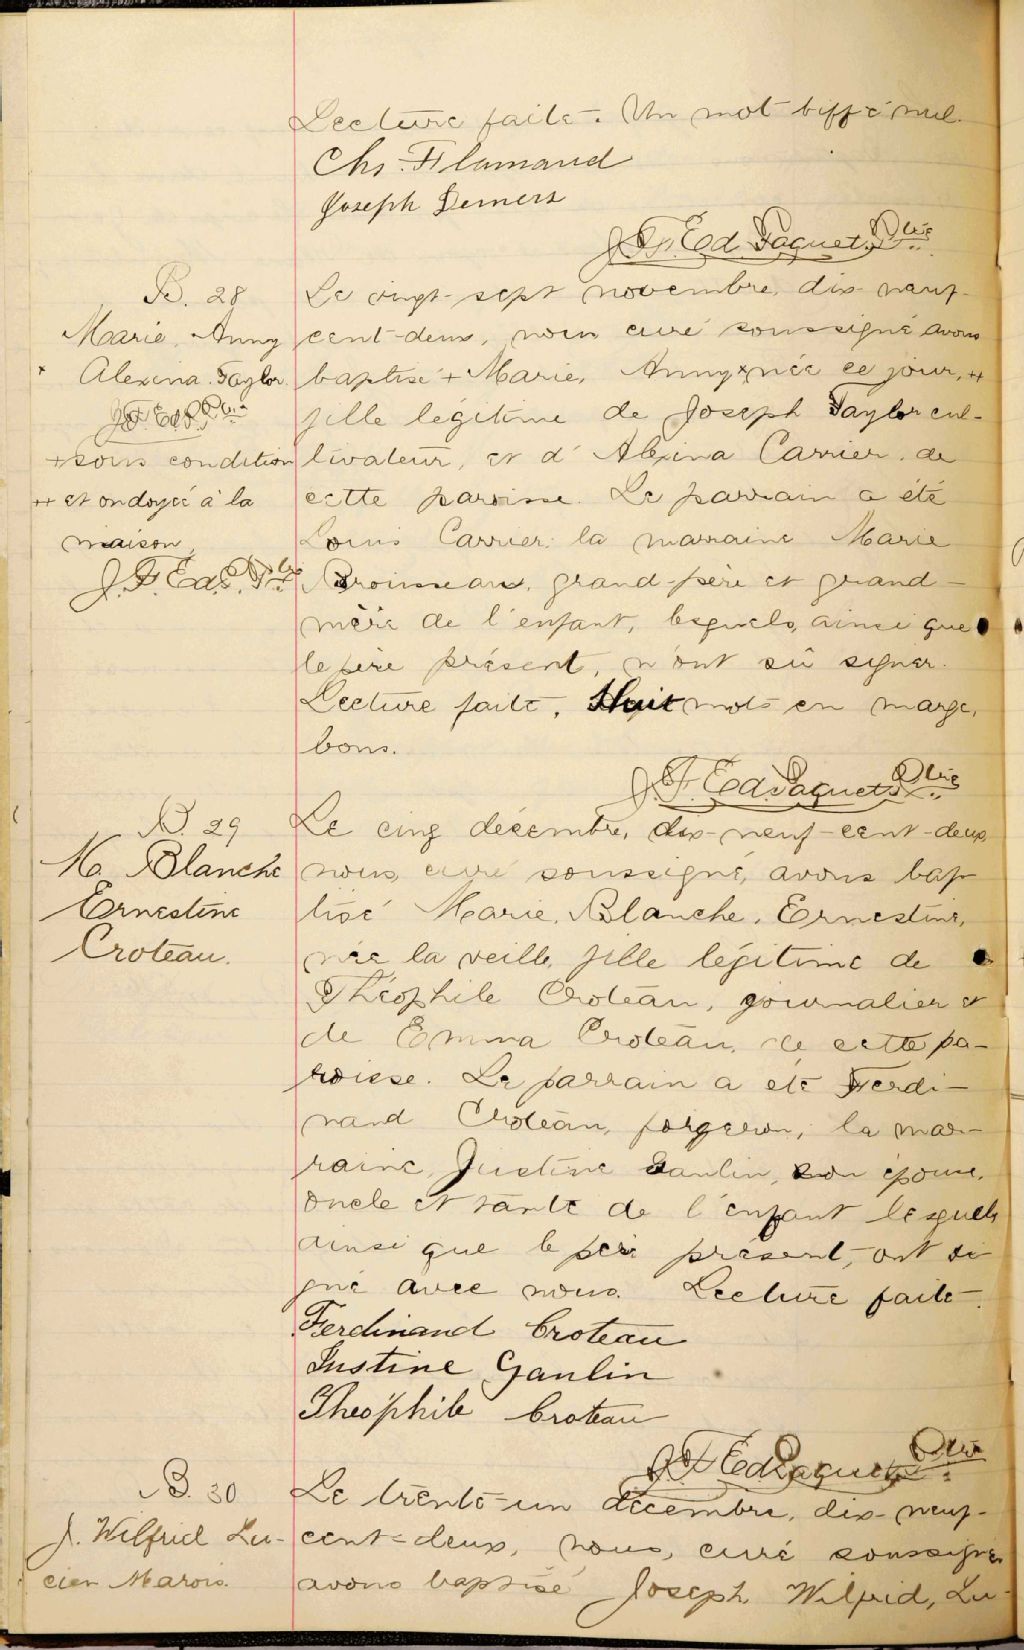 Lecture faite. Un mot biffé nul.
Chs. Flamand
Joseph Demers
J. F. Ed. Paquet Ptre
B. 28
Marie, Anny
Alexina Taylor.
J. F. Ed. P. Ptre
+ sous condition
++ et ondoyée à la
maison,
J. F. Ed. P. Ptre
Le vingt-sept novembre, dix-neuf-
cent-deux, nous curé soussigné avons
baptisé + Marie, Anny x née ce jour, ++
fille légitime de Joseph Taylor cul-
tivateur, et d'Alexina Carrier, de
cette paroisse. Le parrain a été
Louis Carrier, la marraine Marie
Broisseau, grand-père et grand-
mère de l'enfant, lesquels, ainsi que
le père présent, n'ont sû signer.
Lecture faite, Huit mots en marge,
bons.
J. F. Ed. Paquet Ptre
B. 29
M. Blanche
Ernestine
Croteau.
Le cinq décembre, dix-neuf-cent-deux,
nous, curé soussigné, avons bap
tisé Marie, Blanche, Ernestine,
née la veille, fille légitime de
Théophile Croteau, journalier et
de Emma Croteau, de cette pa-
roisse. Le parrain a été Ferdi-
nand Croteau, forgeron, la mar-
raine, Justine Gaulin, son épouse,
oncle et tante de l'enfant lesquels
ainsi que le père présent, ont si
gné avec nous. Lecture faite.
Ferdinand Croteau
Justine Gaulin
Théophile Croteau
J. F. Ed Paquet Ptre
B. 30
J. Wilfrid Lu-
cien Marois.
Le trente-un décembre, dix-neuf-
cent-deux, nous, curé soussigné
avons baptisé Joseph, Wilfrid, Lu-